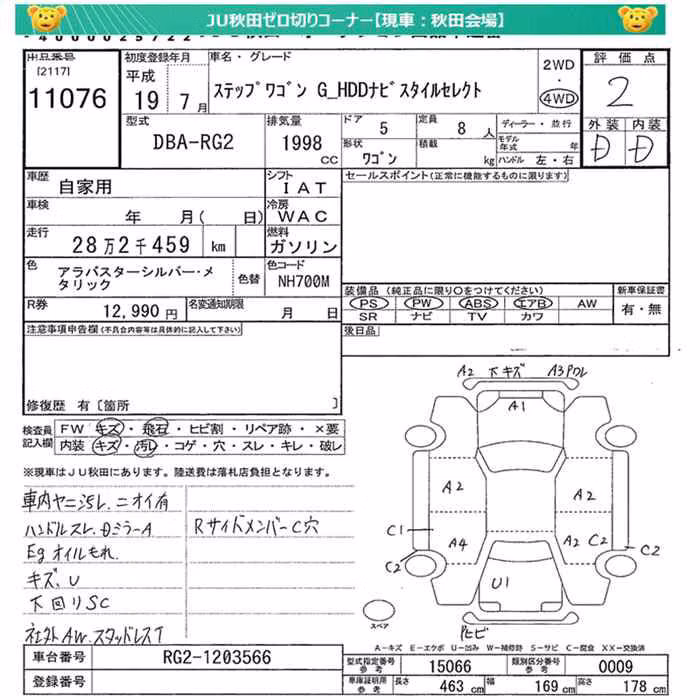 JU秋田ゼロ切りコーナー【現車：秋田会場】
出品番号
[2117]
11076
初度登録年月
平成
19 7月
車名・グレード
ステップワゴン G_HDDナビスタイルセレクト
2WD
・
4WD
評価点
2
外装 内装
D D
型式
DBA-RG2
排気量
1998
CC
ドア 5
定員 8人
形状 ワゴン
積載 kg
ディーラー・並行
モデル年式 年
ハンドル 左・右
車歴
自家用
シフト
IAT
セールスポイント(正常に機能するものに限ります)
車検
年 月( 日)
冷房
WAC
走行
28万2千459 km
燃料
ガソリン
色
アラバスターシルバー・メタリック
色替
色コード
NH700M
装備品(純正品に限り○をつけてください)
新車保証書
PS PW ABS エアB AW
有・無
SR ナビ TV カワ
R券
12,990円
名変通知期限
月 日
後日品
注意事項申告欄(不具合内容等は具体的に記入して下さい)
修復歴 有〔箇所 〕
検査員記入欄
FW キズ・飛石・ヒビ割・リペア跡・×要
内装 キズ・汚レ・コゲ・穴・スレ・キレ・破レ
※現車はJU秋田にあります。陸送費は落札店負担となります。
車内ヤニ汚レ.ニオイ有
ハンドルスレ.
Rサイドメンバー C穴
Egオイルもれ.
キズ、U
下回りSC
社外AW.スタッドレスT
A2 下キズ A3
A1
A2 A2
C1 A4 A2 C2 C2
C2
U1
ヒビ
スペア
A－キズ E－エクボ U－凹み W－補修跡 S－サビ C－腐食 XX－交換済
車台番号
RG2-1203566
型式指定番号参考
15066
類別区分番号参考
0009
登録番号
車庫証明用参考
長さ 463 cm
幅 169 cm
高さ 178 cm